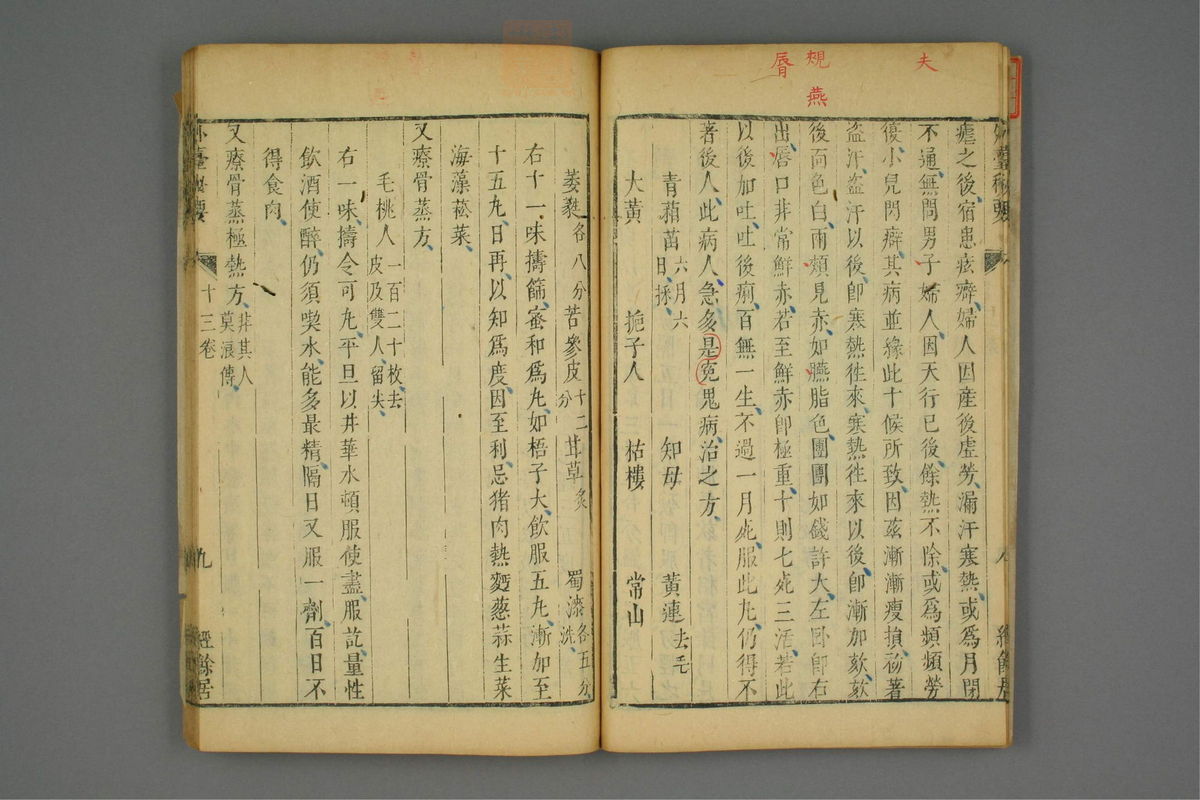 夫
䫌 燕
脣
外臺秘要
八
經餘居
瘧之後宿患痃癖婦人因産後虚勞漏汗寒熱或爲月閉
不通無問男子婦人因天行已後餘熱不除或爲頻頻勞
復小兒閃癖其病並緣此十候所致因兹漸漸瘦損初著
盗汗盗汗以後卽寒熱徃來寒熱徃來以後卽漸加欬欬
後面色白兩頰見赤如臙脂色團團如錢許大左卧卽右
出唇口非常鮮赤若至鮮赤卽極重十則七死三活若此
以後加吐吐後痢百無一生不過一月死服此丸仍得不
著後人此病人急多是寃鬼病治之方
青葙苗六月六日採 知母 黄連去毛
大黄 梔子人 枯樓 常山
萎蕤各八分 苦參皮十二分 甘草炙 蜀漆各五分洗
右十一味擣篩蜜和爲丸如梧子大飲服五丸漸加至
十五丸日再以知爲度因至利忌猪肉熱麫葱蒜生菜
海藻菘菜
又療骨蒸方
毛桃人一百二十枚去皮及雙人留尖
右一味擣令可丸平旦以井華水頓服使盡服訖量性
飲酒使醉仍須喫水能多最精隔日又服一劑百日不
得食肉
又療骨蒸極熱方非其人莫浪傳
外臺秘要
十三卷
九
經餘居